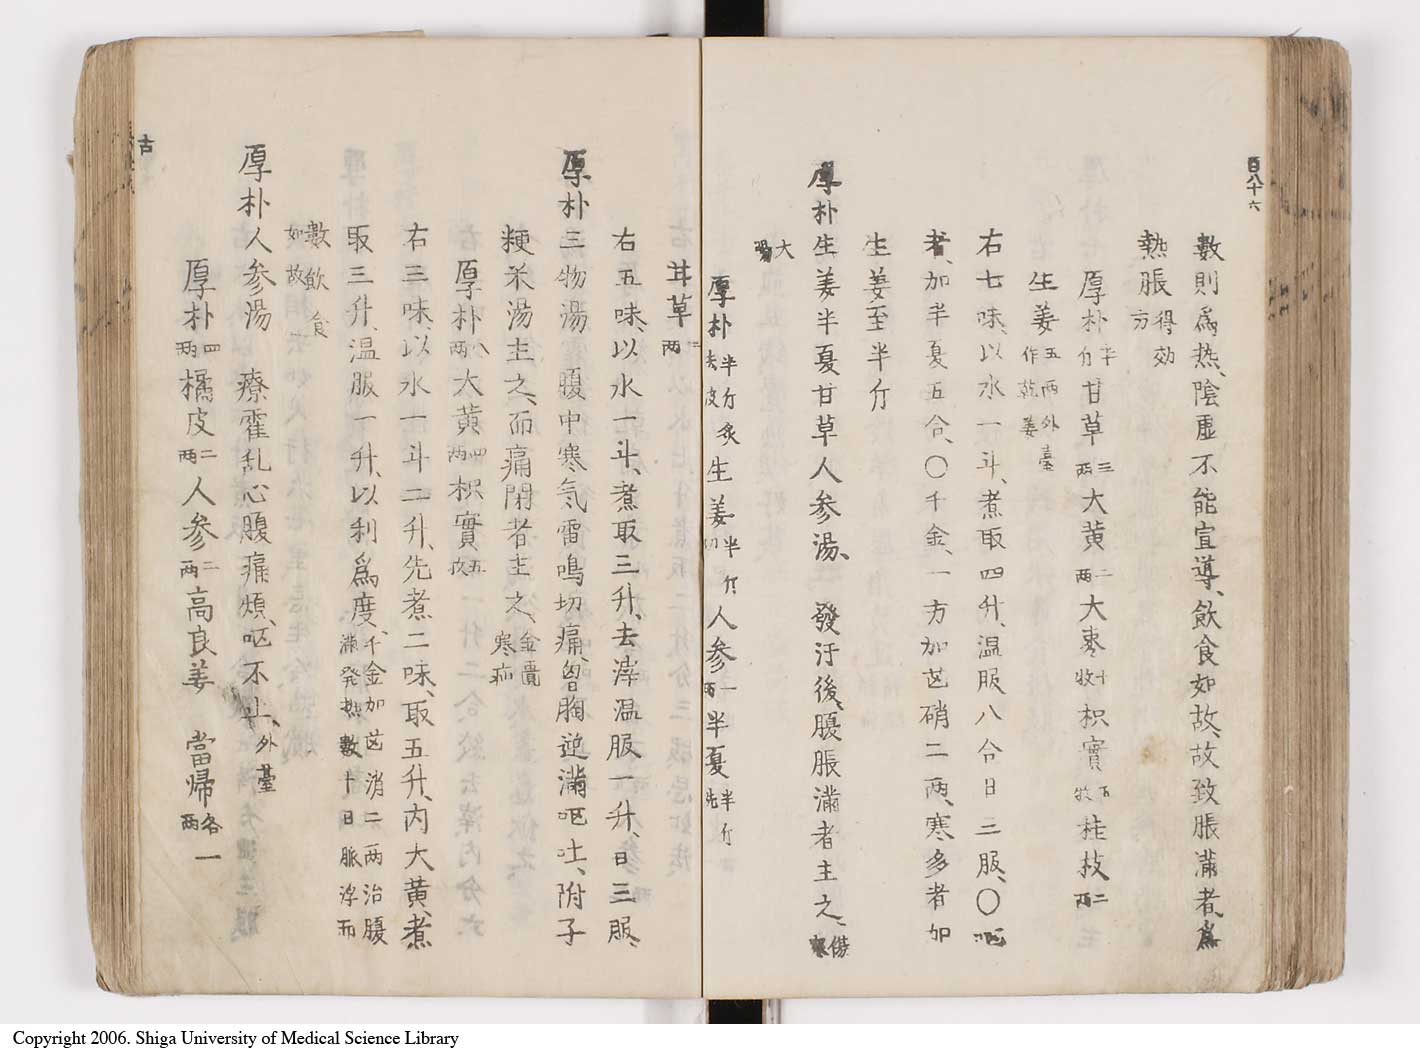 百八十六
數則爲热、陰虛不能宣導、飲食如故、故致脹滿者、爲
熱脹得効方
厚朴半斤甘草三兩大黄二兩大棗十枚枳實五枚桂枝二兩
生姜五兩外臺作乾姜
右七味、以水一斗、煮取四升、温服八合日三服、〇嘔
者、加半夏五合、〇千金、一方加芒硝二两、寒多者加
生姜至半斤
厚朴生姜半夏甘草人参湯、發汗後、腹脹滿者主之、傷寒
大陽
厚朴半斤去皮炙生姜半斤切人参一兩半夏半斤洗
甘草二兩
右五味、以水一斗、煮取三升、去滓温服、一升、日三服、
厚朴三物湯霍腹中寒氣雷鳴切痛、胷胸逆滿嘔吐、附子
粳米湯主之、而痛閉者主之、金匱寒疝
厚朴八兩大黄四兩枳實五枚
右三味、以水一斗二升、先煮二味、取五升、内大黄、煮
取三升、温服一升、以利爲度、千金加芒消二两治腹滿発热數十日脈浮而
數飲食如故
厚朴人参湯　療霍乱心腹痛煩、嘔不止、外臺
厚朴四兩橘皮二兩人参二兩高良姜　當帰各一兩
古
Copyright 2006. Shiga University of Medical Science Library